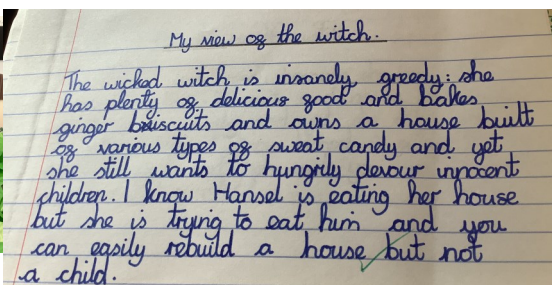 My view of the witch.
The wicked witch is insanely greedy: she
has plenty of delicious food and bakes
ginger briscuits and owns a house built
of various types of sweat candy and yet
she still wants to hungrily devour innocent
children. I know Hansel is eating her house
but she is trying to eat him and you
can easily rebuild a house but not
a child.